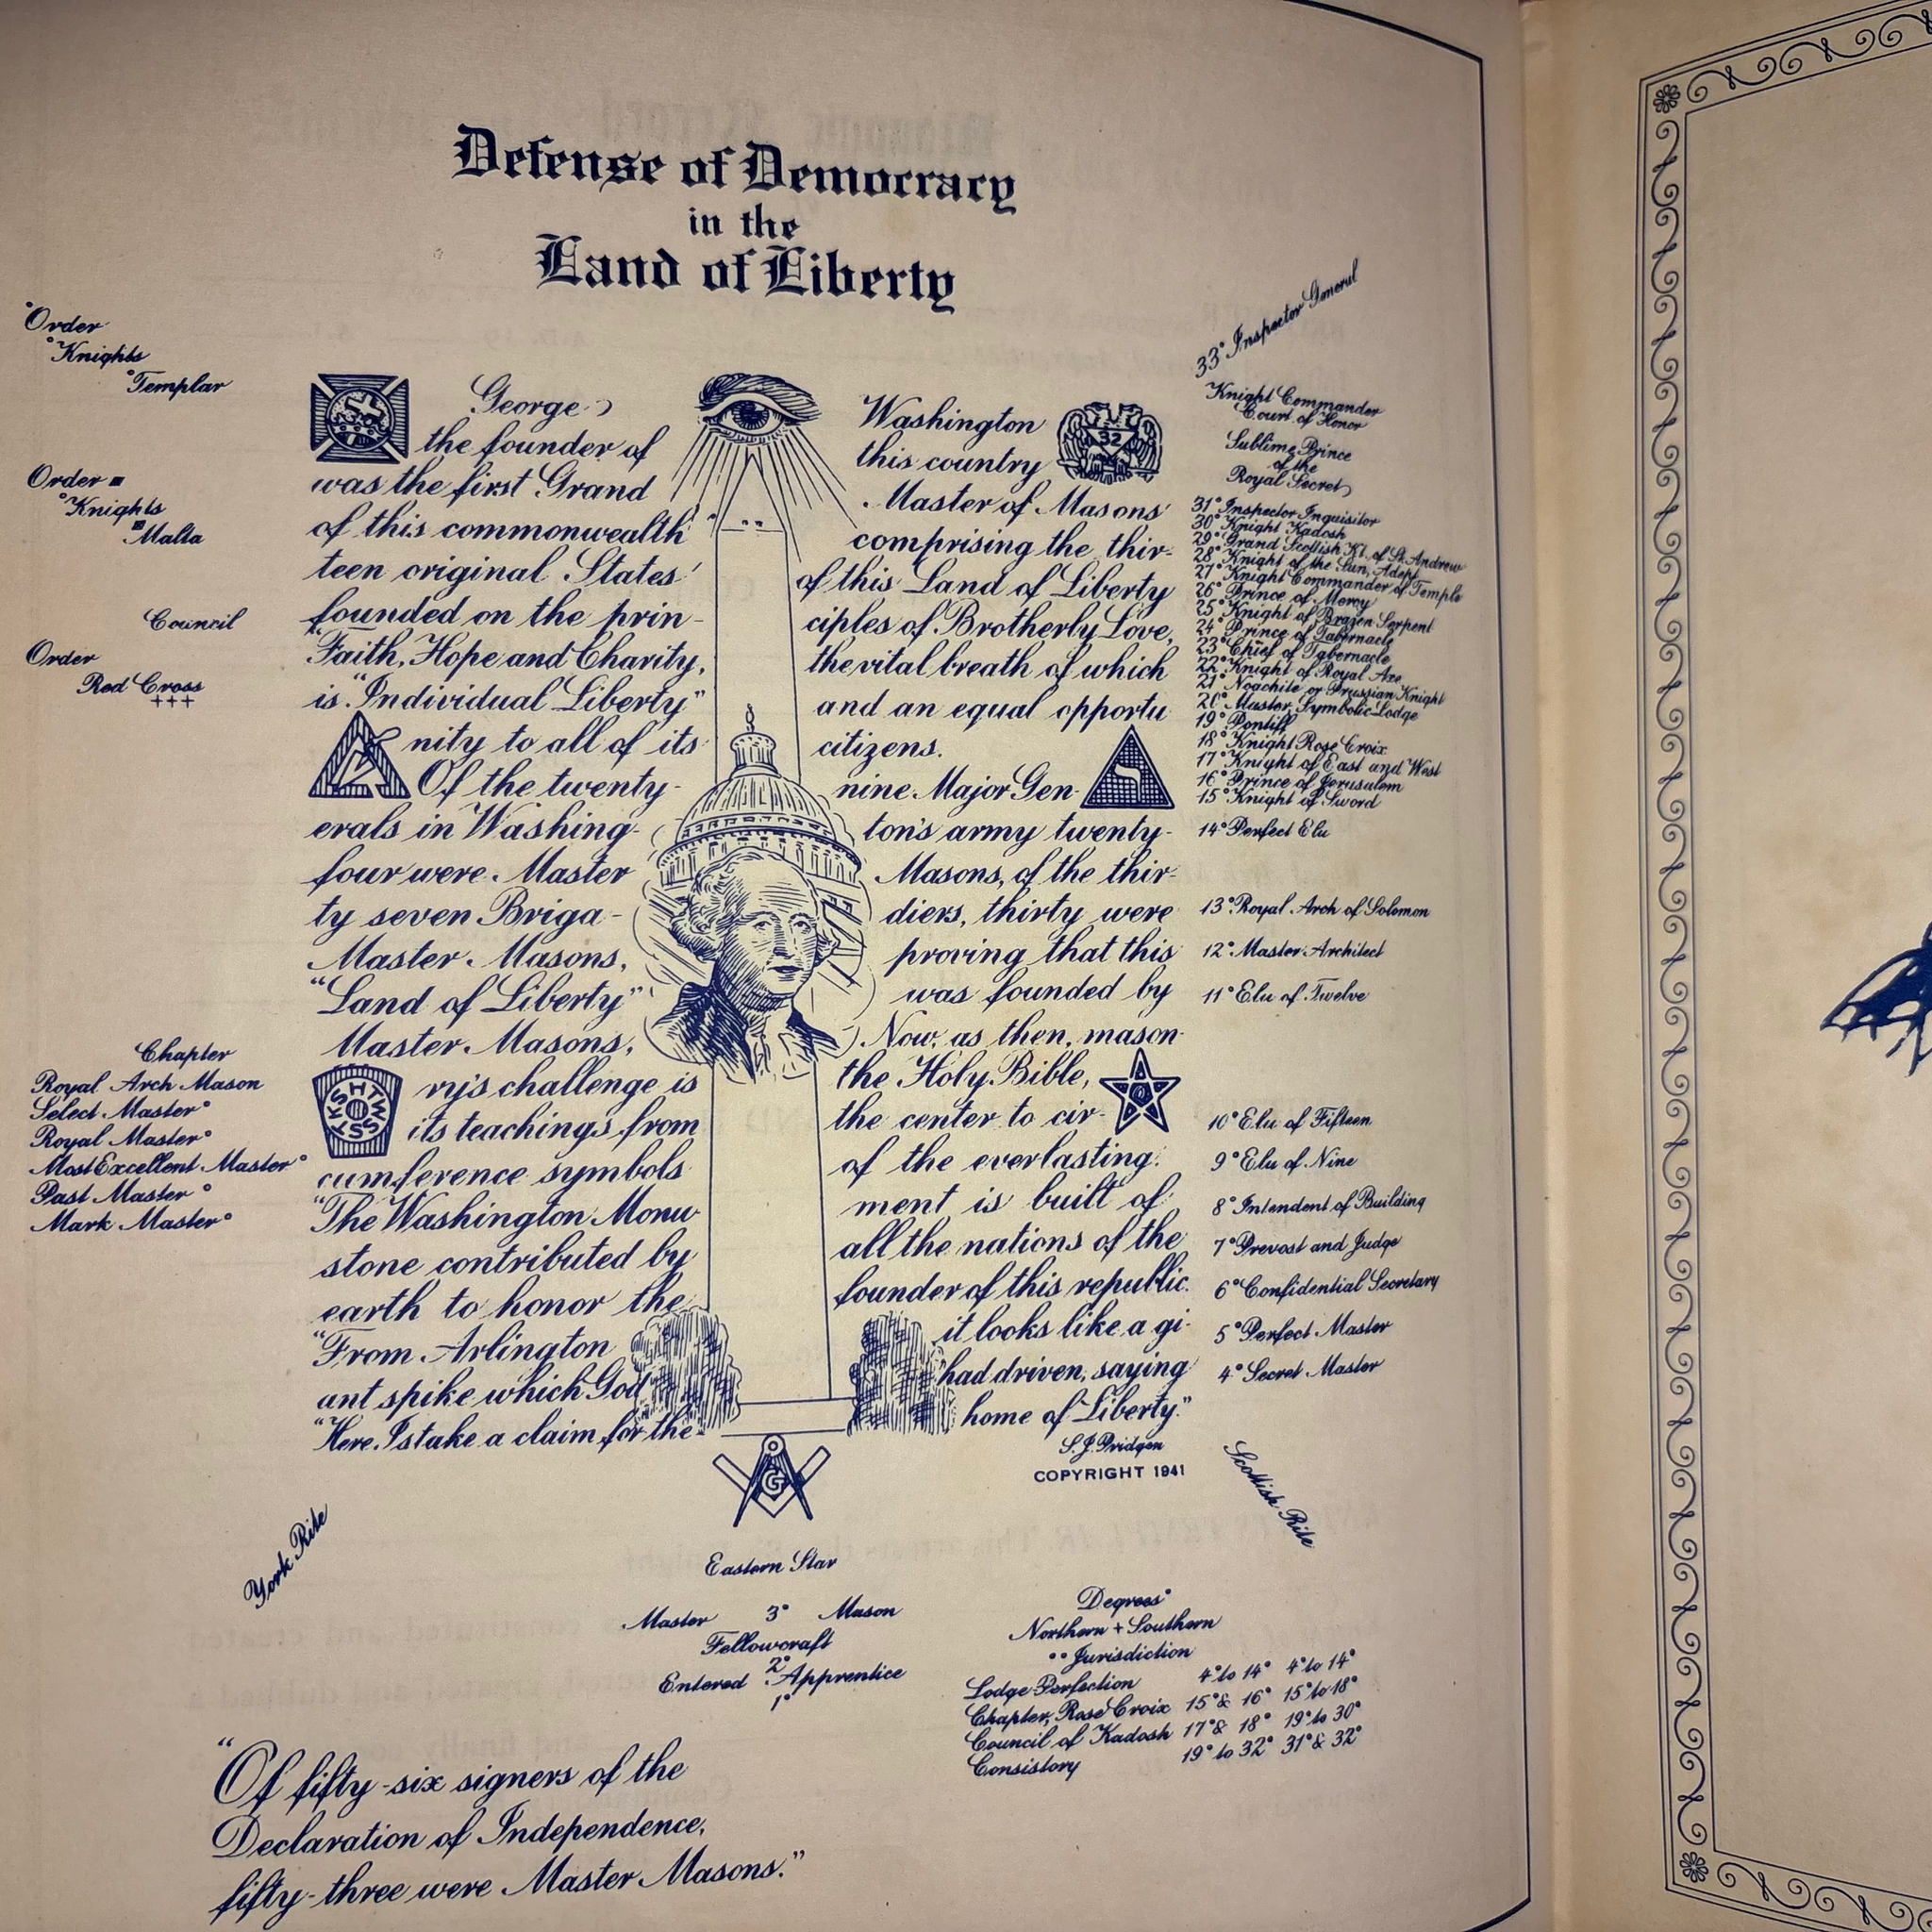 Defense of Democracy
in the
Land of Liberty
°Order
°Knights
°Templar
Order
°Knights
Malta
Council
Order
Red Cross
+++
Chapter
Royal Arch Mason
Select Master°
Royal Master°
Most Excellent Master°
Past Master°
Mark Master°
York Rite
George Washington
32
the founder of this country
was the first Grand Master of Masons
of this commonwealth comprising the thir-
teen original States of this Land of Liberty
founded on the prin- ciples of Brotherly Love,
"Faith, Hope and Charity, the vital breath of which
is "Individual Liberty" and an equal opportu
nity to all of its citizens.
Of the twenty- nine Major Gen-
erals in Washing- ton's army twenty-
four were Master Masons, of the thir-
ty seven Briga- diers, thirty were
Master Masons, proving that this
"Land of Liberty" was founded by
Master Masons, Now, as then, mason-
HTWSSTKS
ry's challenge is the Holy Bible,
its teachings from the center to cir-
cumference symbols of the everlasting.
"The Washington Monu ment is built of
stone contributed by all the nations of the
earth to honor the founder of this republic.
"From Arlington it looks like a gi-
ant spike which God had driven, saying
"Here I stake a claim for the home of Liberty."
S.J. Pridgen
COPYRIGHT 1941
G
33° Inspector General
Knight Commander
Court of Honor
Sublime Prince
of the
Royal Secret
31° Inspector Inquisitor
30° Knight Kadosh
29° Grand Scottish Kt. of St. Andrew
28° Knight of the Sun, Adept
27° Knight Commander of Temple
26° Prince of Mercy
25° Knight of Brazen Serpent
24° Prince of Tabernacle
23° Chief of Tabernacle
22° Knight of Royal Axe
21° Noachite or Prussian Knight
20° Master, Symbolic Lodge
19° Pontiff
18° Knight Rose Croix
17° Knight of East and West
16° Prince of Jerusalem
15° Knight of Sword
14° Perfect Elu
13° Royal Arch of Solomon
12° Master Architect
11° Elu of Twelve
10° Elu of Fifteen
9° Elu of Nine
8° Intendent of Building
7° Prevost and Judge
6° Confidential Secretary
5° Perfect Master
4° Secret Master
Scottish Rite
Eastern Star
Master 3° Mason
Fellowcraft
2°
Entered Apprentice
1°
Degrees°
Northern + Southern
°° Jurisdiction
Lodge Perfection 4° to 14° 4° to 14°
Chapter, Rose Croix 15° & 16° 15° to 18°
Council of Kadosh 17° & 18° 19° to 30°
Consistory 19° to 32° 31° & 32°
"Of fifty-six signers of the
Declaration of Independence,
fifty-three were Master Masons."